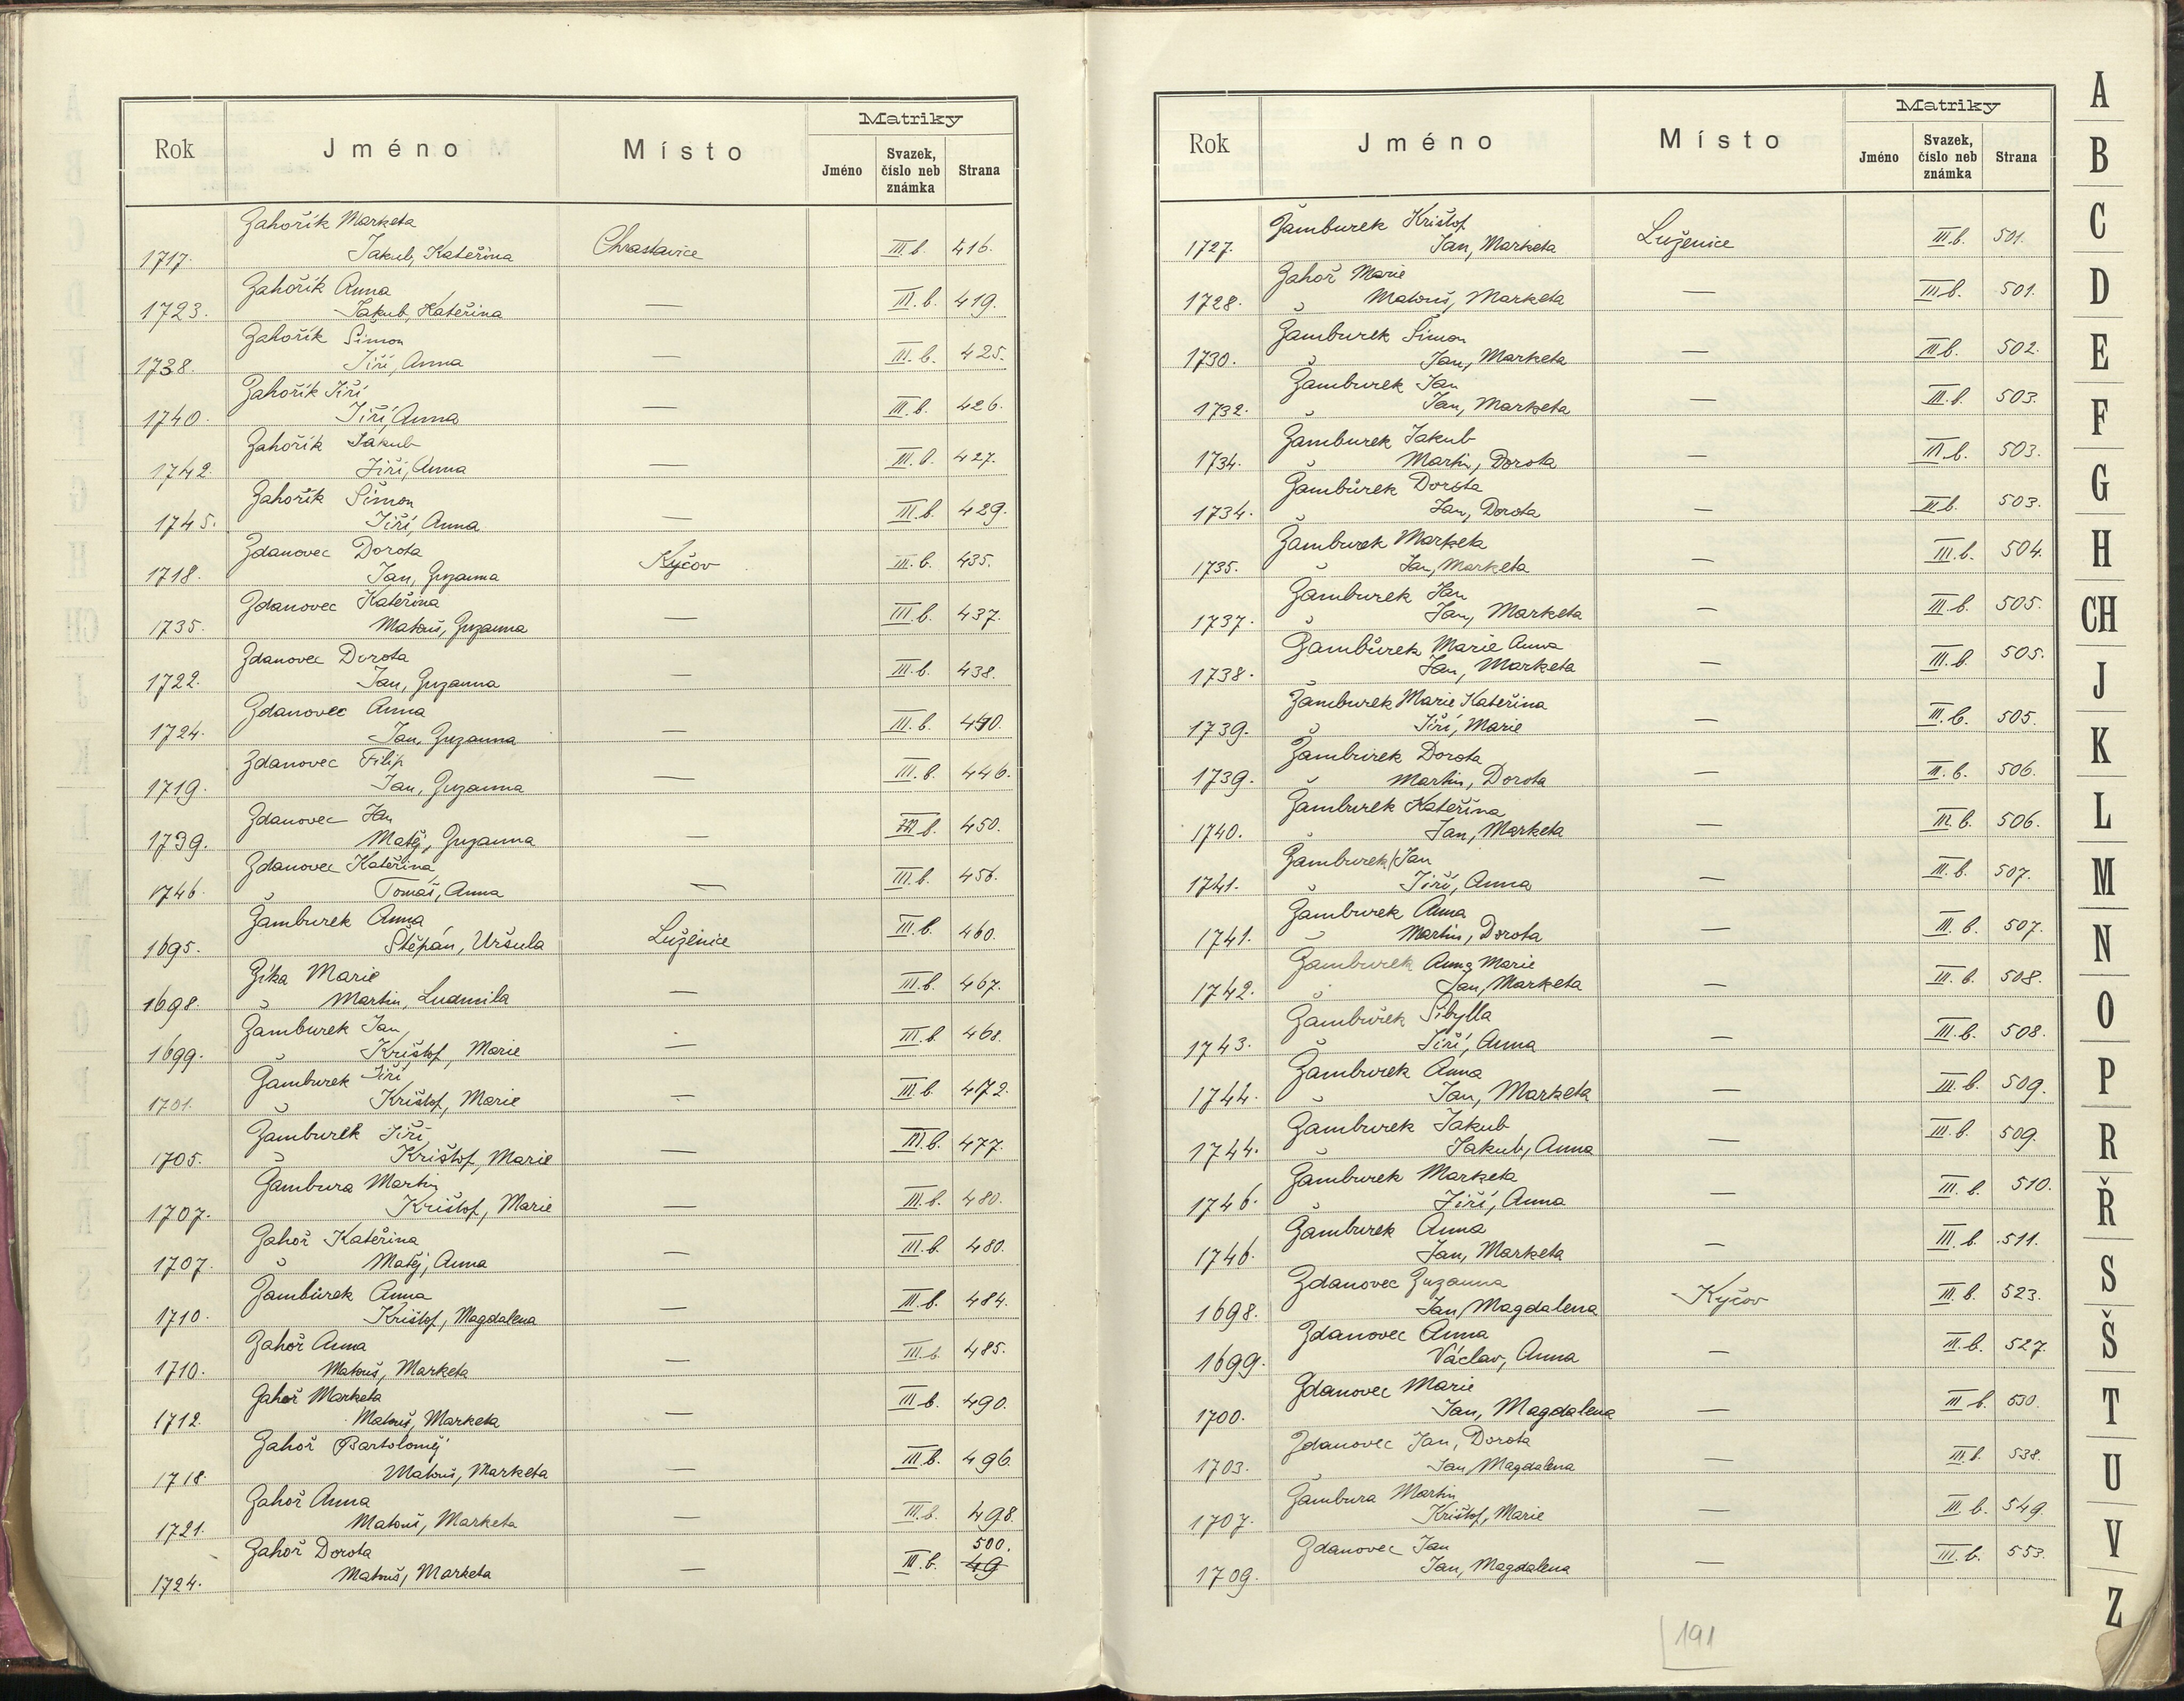 Rok Jméno Místo Matriky
Jméno Svazek, číslo neb známka Strana
Zahořík Marketa
1717. Jakub, Kateřina Chrastavice III.b. 416.
Zahořík Anna
1723. Jakub, Kateřina — III.b. 419.
Zahořík Šimon
1738. Jiří, Anna — III.b. 425.
Zahořík Jiří
1740. Jiří, Anna — III.b. 426.
Zahořík Jakub
1742. Jiří, Anna — III.b. 427.
Zahořík Šimon
1745. Jiří, Anna — III.b. 429.
Zdanovec Dorota
1718. Jan, Zuzanna Kyčov III.b. 435.
Zdanovec Kateřina
1735. Matouš, Zuzanna — III.b. 437.
Zdanovec Dorota
1722. Jan, Zuzanna — III.b. 438.
Zdanovec Anna
1724. Jan, Zuzanna — III.b. 440.
Zdanovec Filip
1719. Jan, Zuzanna — III.b. 446.
Zdanovec Jan
1739. Matěj, Zuzanna — III.b. 450.
Zdanovec Kateřina
1746. " Tomáš, Anna — III.b. 456.
Žamburek Anna
1695. Štěpán, Uršula Luženice III.b. 460.
Zíka Marie
1698. " Martin, Ludmila — III.b. 467.
Žamburek Jan
1699. " Krištof, Marie — III.b. 468.
Žamburek Jiří
1701. " Krištof, Marie — III.b. 472.
Žamburek Jiří
1705. " Krištof, Marie — III.b. 477.
Žambura Martin
1707. Krištof, Marie — III.b. 480.
Zahoř Kateřina
1707. " Matěj, Anna — III.b. 480.
Žambůrek Anna
1710. Krištof, Magdalena — III.b. 484.
Zahoř Anna
1710. Matouš, Marketa — III.b. 485.
Zahoř Marketa
1712. Matouš, Marketa — III.b. 490.
Zahoř Bartoloměj
1718. Matouš, Marketa — III.b. 496.
Zahoř Anna
1721. Matouš, Marketa — III.b. 498.
Zahoř Dorota 500.
1724. Matouš, Marketa — III.b. 49
Rok Jméno Místo Matriky
Jméno Svazek, číslo neb známka Strana
Žamburek Krištof
1727. Jan, Marketa Luženice III.b. 501.
Zahoř Marie
1728. " Matouš, Marketa — III.b. 501.
Žamburek Šimon
1730. " Jan, Marketa — III.b. 502.
Žamburek Jan
1732. " Jan, Marketa — III.b. 503.
Žamburek Jakub
1734. " Martin, Dorota — III.b. 503.
Žambůrek Dorota
1734. " Jan, Dorota — III.b. 503.
Žamburek Marketa
1735. " Jan, Marketa — III.b. 504.
Žamburek Jan
1737. " Jan, Marketa — III.b. 505.
Žambůrek Marie Anna
1738. Jan, Marketa — III.b. 505.
Žamburek Marie Kateřina
1739. " Jiří, Marie — III.b. 505.
Žamburek Dorota
1739. " Martin, Dorota — III.b. 506.
Žamburek Kateřina
1740. " Jan, Marketa — III.b. 506.
Žamburek Jan
1741. " Jiří, Anna — III.b. 507.
Žamburek Anna
1741. " Martin, Dorota — III.b. 507.
Žamburek Anna Marie
1742. " Jan, Marketa — III.b. 508.
Žamburek Sibylla
1743. " Jiří, Anna — III.b. 508.
Žamburek Anna
1744. " Jan, Marketa — III.b. 509.
Žamburek Jakub
1744. Jakub, Anna — III.b. 509.
Žamburek Marketa
1746. " Jiří, Anna — III.b. 510.
Žamburek Anna
1746. Jan, Marketa — III.b. 511.
Zdanovec Zuzanna
1698. Jan, Magdalena Kyčov III.b. 523.
Zdanovec Anna
1699. Václav, Anna — III.b. 527.
Zdanovec Marie
1700. Jan, Magdalena — III.b. 530.
Zdanovec Jan, Dorota
1703. " Jan, Magdalena — III.b. 538.
Žambura Martin
1707. Krištof, Marie — III.b. 549.
Zdanovec Jan
1709. Jan, Magdalena — III.b. 553.
191
A
B
C
D
E
F
G
H
CH
J
K
L
M
N
O
P
R
Ř
S
Š
T
U
V
Z